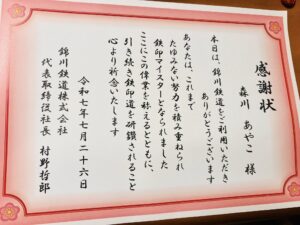 感謝状
森川 あやこ 様
本日は、錦川鉄道をご利用いただき
ありがとうございます
あなたは、これまで
たゆみない努力を積み重ねられ
鉄印マイスターとなられました
ここにこの偉業を称えるとともに、
引き続き鉄印道を研鑽されること
心より祈念いたします
令和七年七月二十六日
錦川鉄道株式会社
代表取締役社長 村野哲郎